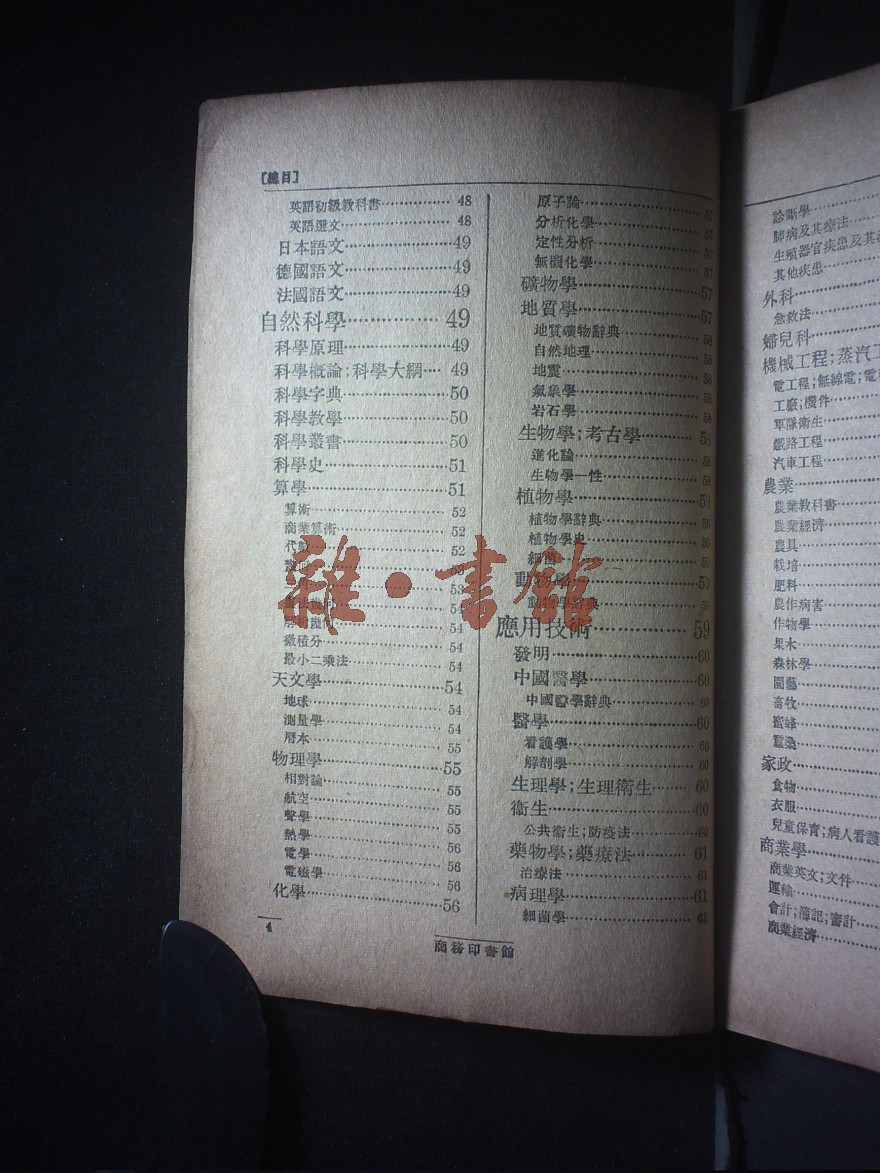 [總目]
英語初級教科書 48
英語選文 48
日本語文 49
德國語文 49
法國語文 49
自然科學 49
科學原理 49
科學概論;科學大綱 49
科學字典 50
科學教學 50
科學叢書 50
科學史 51
算學 51
算術 52
商業算術 52
代數 52
53
53
幾何 54
解析幾何 54
微積分 54
最小二乘法 54
天文學 54
地球 54
測量學 54
曆本 55
物理學 55
相對論 55
航空 55
聲學 55
熱學 56
電學 56
電磁學 56
化學 56
4
原子論 57
分析化學 57
定性分析 57
無機化學 57
礦物學 57
地質學 57
地質礦物辭典 58
自然地理 58
地震 58
氣象學 58
岩石學 58
生物學;考古學 58
進化論 58
生物學—性 59
植物學 59
植物學辭典 59
植物學史 59
細菌 59
動物學 59
動物學辭典 59
應用技術 59
發明 60
中國醫學 60
中國醫學辭典 60
醫學 60
看護學 60
解剖學 60
生理學;生理衛生 60
衞生 60
公共衞生;防疫法 60
藥物學;藥療法 61
治療法 61
病理學 61
細菌學 61
商務印書館
診斷學
肺病及其療法
生殖器官疾患及其
其他疾患
外科
急救法
婦兒科
機械工程;蒸汽
電工程;無線電;電
工廠;機件
軍隊衛生
鐵路工程
汽車工程
農業
農業教科書
農業經濟
農具
栽培
肥料
農作病害
作物學
果木
森林學
園藝
畜牧
蜜蜂
蠶桑
家政
食物
衣服
兒童保育;病人看護
商業學
商業英文;文件
運輸
會計;簿記;審計
商業經濟
雜·書館